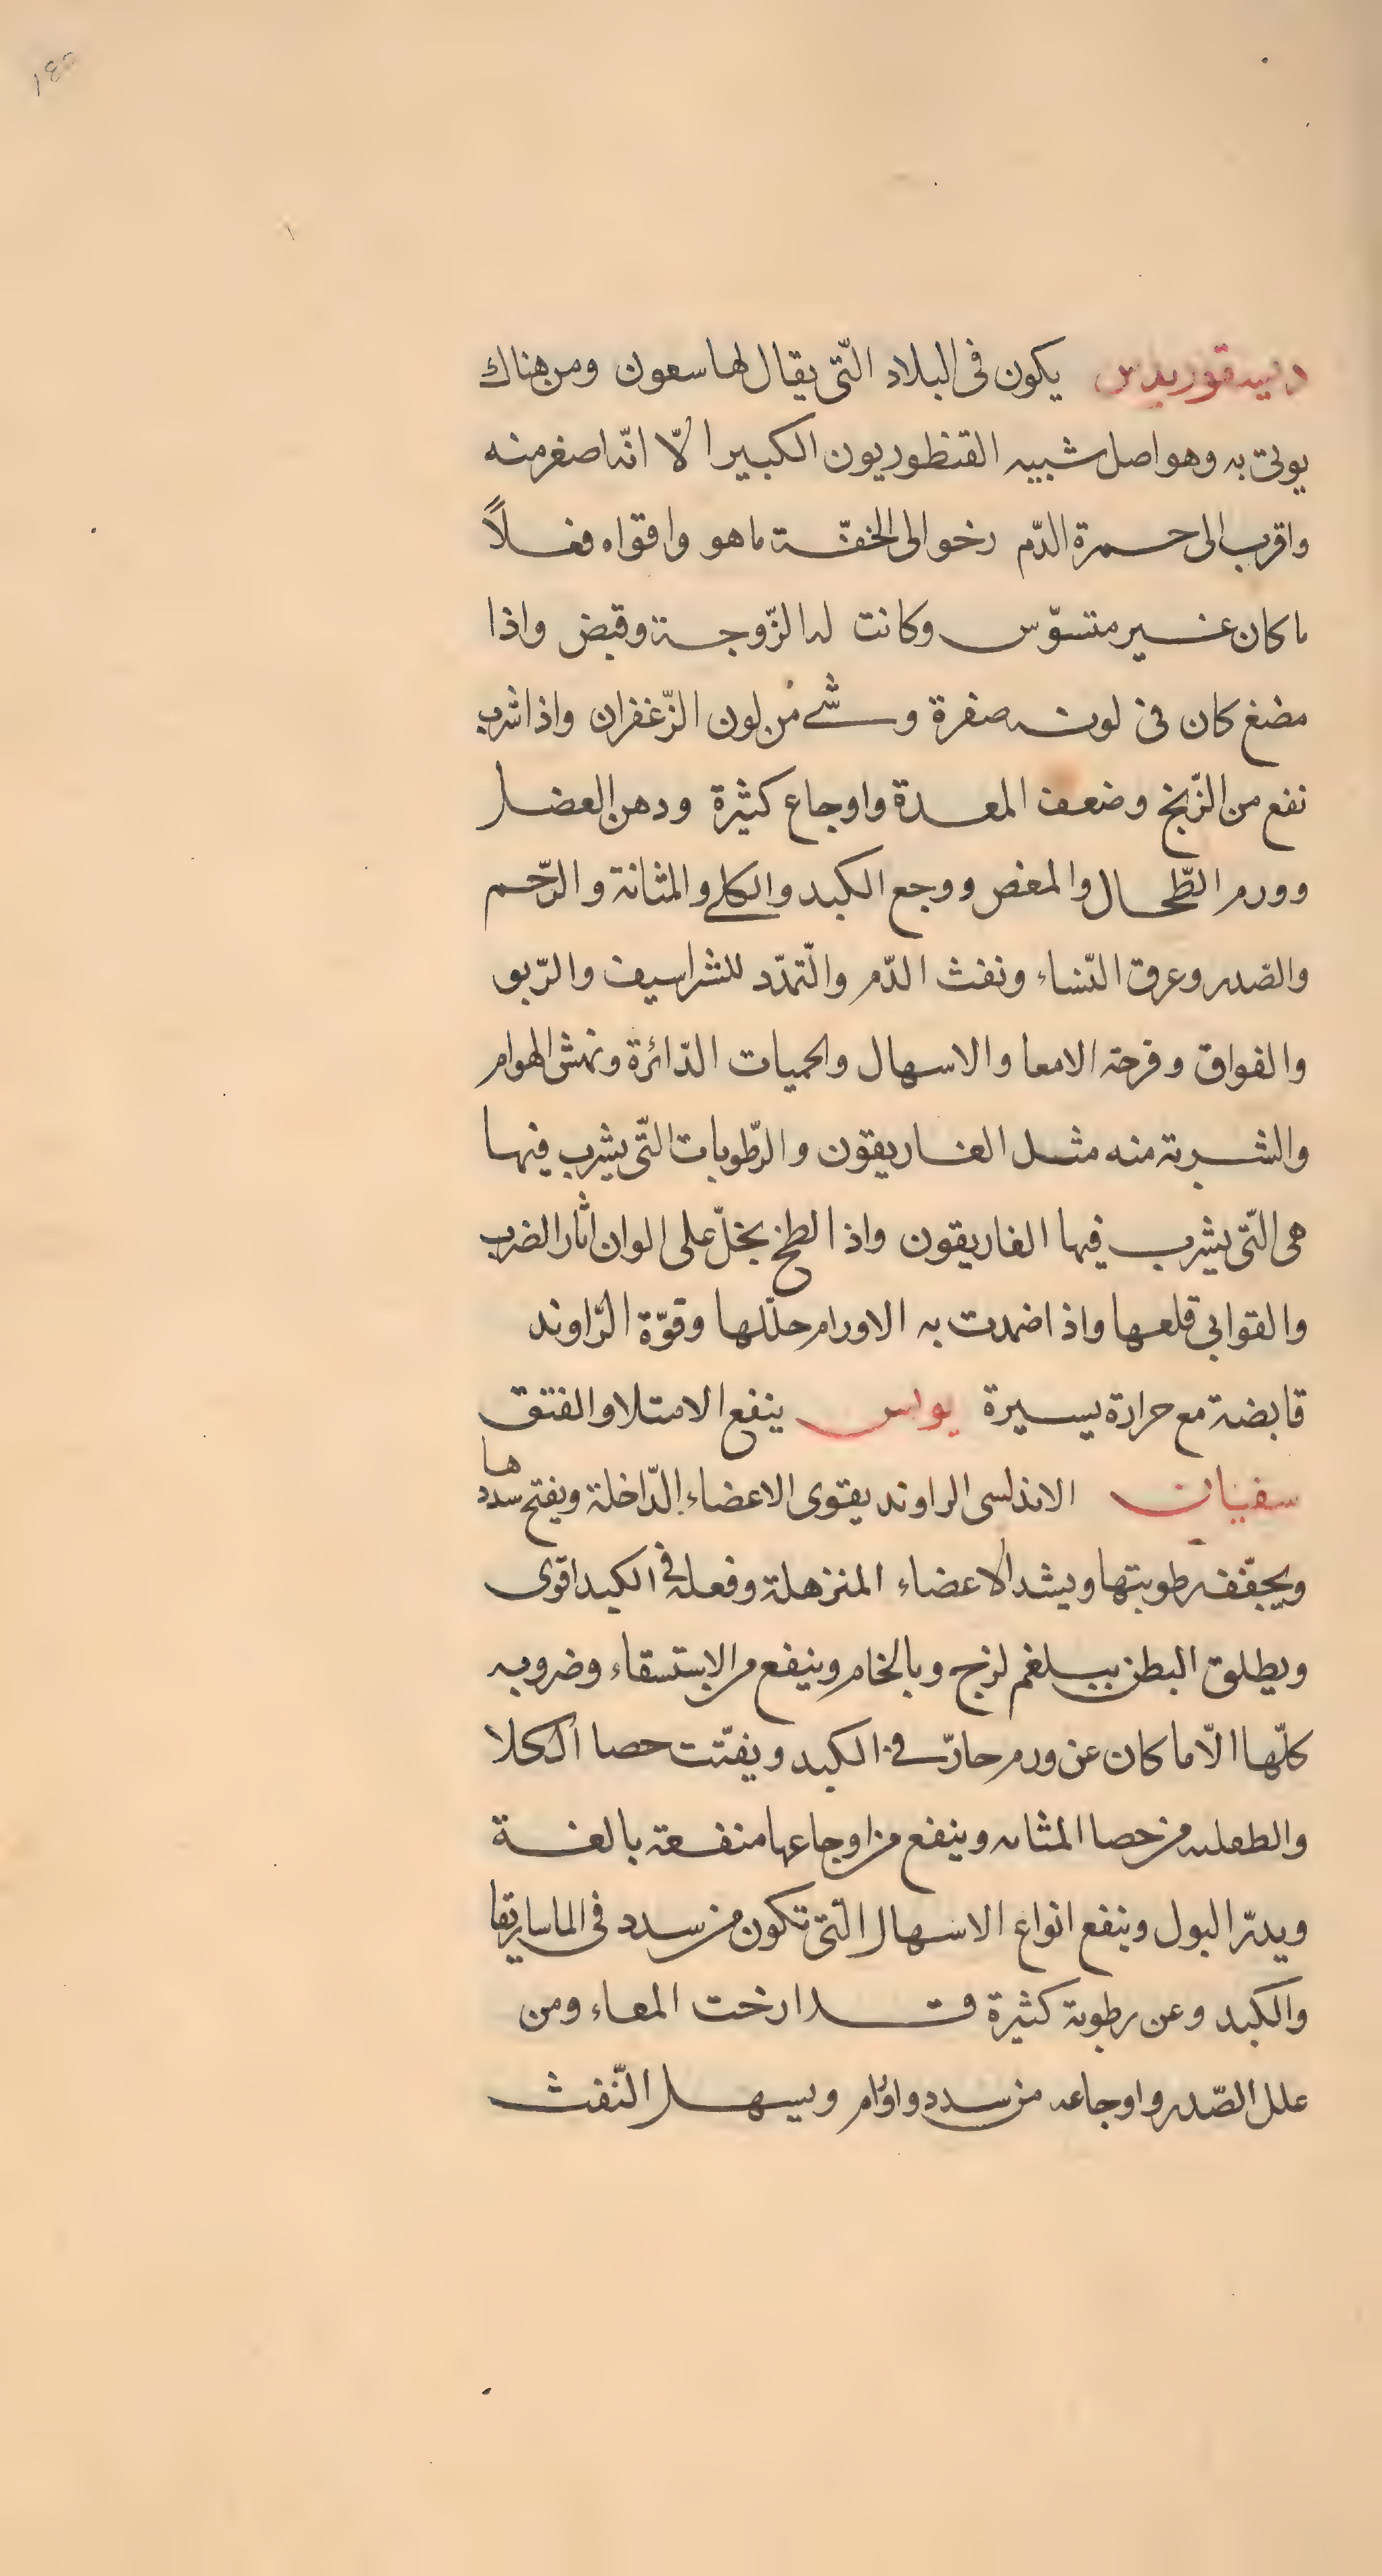 185
ديسقوريدس يكون فى البلاد الّتى يقال لها سعون ومن هناك
يوتى به وهو اصل شبيه القنظوريون الكبير الّا انّه اصغر منه
واقرب الى حمرة الدّم رخو الى الخفّة ما هو واقواه فعلاً
ما كان غير متسوّس وكانت له الزّوجة وقبض واذا
مضغ كان فى لونه صفرة وشئ من لون الزّغفران واذا شرب
نفع من الرّيح وضعف المعدة واوجاع كثيرة ودهن العضل
وورم الطّحال والمغص ووجع الكبد والكلى والمثانة والرّحم
والصّدر وعرق النّساء ونفث الدّم والتّمدّد للشراسيف والرّبو
والفواق وقرحة الامعا والاسهال والحميات الدّائرة ونهش الهوام
والشربة منه مثل الغاريقون والرّطوبات الّتى يشرب فيها
هى الّتى يشرب فيها الغاريقون واذا لطخ بخلّ على الوان اثار الضرب
والقوابى قلعها واذا ضمدت به الاورام حلّلها وقوّة الرّاوند
قابضة مع حرارة يسيرة بولس ينفع الامتلا والفتق
سفيان الاندلسى الراوند يقوى الاعضاء الدّاخلة ويفتح سددها
ويجفّف رطوبتها ويشد الاعضاء المترهلة وفعله فى الكبد اقوى
ويطلق البطن ببلغم لزج وبالخام وينفع من الاستسقاء وضروبه
كلّها الّا ما كان عن ورم حارّ فى الكبد ويفتّت حصا الكلا
والطعلىه من حصا المثانه وينفع من اوجاعها منفعة بالغة
ويدرّ البول وينفع انواع الاسهال الّتى تكون من سدد فى الماساريقا
والكبد وعن رطوبة كثيرة قد ارخت المعاء ومن
علل الصّدر واوجاعه من سدد واورام ويسهل النّفث